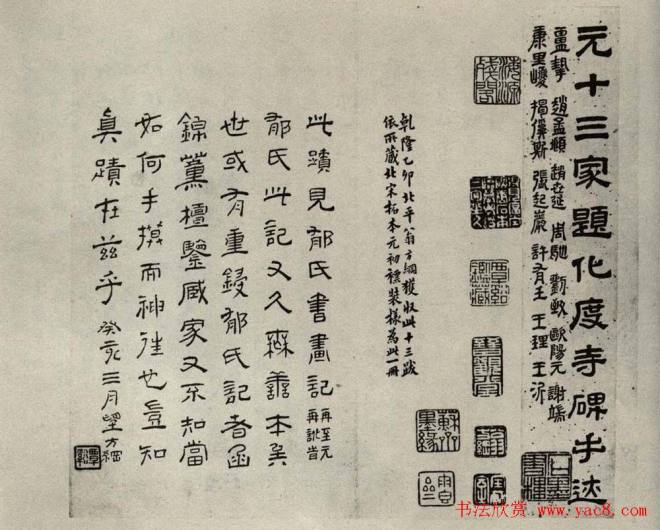 元十三家題化度寺碑手迹
盧摯 趙孟頫 趙世延 周馳 劉致 歐陽元 謝端
康里巎 揭傒斯 張起巖 許有壬 王理 王沂
乾隆乙卯北平翁方綱獲收此十三跋
依所藏北宋拓本元初褾裝樣為此一冊
此蹟見郁氏書畫記 再至元
再訛首
郁氏此記又久無善本矣
世或有重鋟郁氏記者函
錦薰檀鑒藏家又不知當
如何手摸而神往也豈知
真蹟在茲乎 癸亥三月望方綱
覃谿鑑藏
蘇齋墨緣
书法欣赏 www.yac8.com